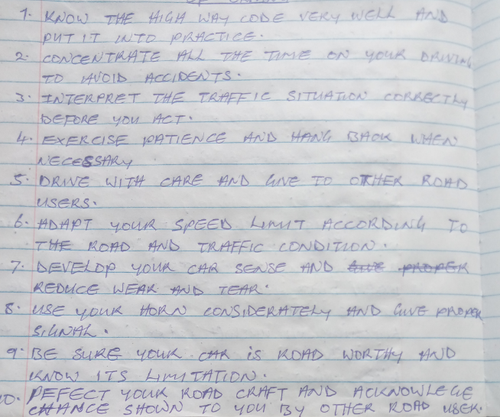 1. KNOW THE HIGH WAY CODE VERY WELL AND
PUT IT INTO PRACTICE.
2. CONCENTRATE ALL THE TIME ON YOUR DRIVING
TO AVOID ACCIDENTS.
3. INTERPRET THE TRAFFIC SITUATION CORRECTLY
BEFORE YOU ACT.
4. EXERCISE PATIENCE AND HANG BACK WHEN
NECESSARY
5. DRIVE WITH CARE AND GIVE TO OTHER ROAD
USERS.
6. ADAPT YOUR SPEED LIMIT ACCORDING TO
THE ROAD AND TRAFFIC CONDITION.
7. DEVELOP YOUR CAR SENSE AND GIVE PROPER
REDUCE WEAR AND TEAR.
8. USE YOUR HORN CONSIDERATELY AND GIVE PROPER
SIGNAL.
9. BE SURE YOUR CAR IS ROAD WORTHY AND
KNOW ITS LIMITATION.
10. PEFECT YOUR ROAD CRAFT AND ACKNOWLEGE
CHANCE SHOWN TO YOU BY OTHER ROAD USER.